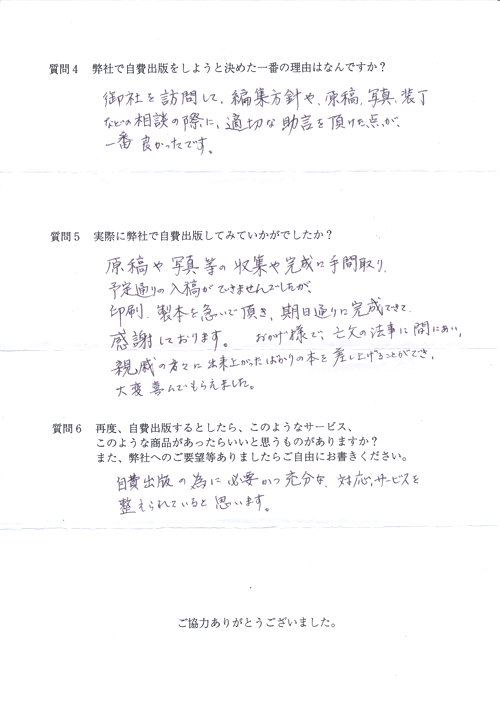 質問4　弊社で自費出版をしようと決めた一番の理由はなんですか？
御社を訪問して、編集方針や、原稿、写真、装丁
などの相談の際に、適切な助言を頂けた点が、
一番良かったです。
質問5　実際に弊社で自費出版してみていかがでしたか？
原稿や写真等の収集や完成に手間取り、
予定通りの入稿ができませんでしたが、
印刷、製本を急いで頂き、期日通りに完成できて
感謝しております。おかげ様で、亡父の法事に間にあい、
親戚の方々に出来上がったばかりの本を差し上げることができ、
大変喜んでもらえました。
質問6　再度、自費出版するとしたら、このようなサービス、
このような商品があったらいいと思うものがありますか？
また、弊社へのご要望等ありましたらご自由にお書きください。
自費出版の為に必要かつ充分な、対応、サービスを
整えられていると思います。
ご協力ありがとうございました。